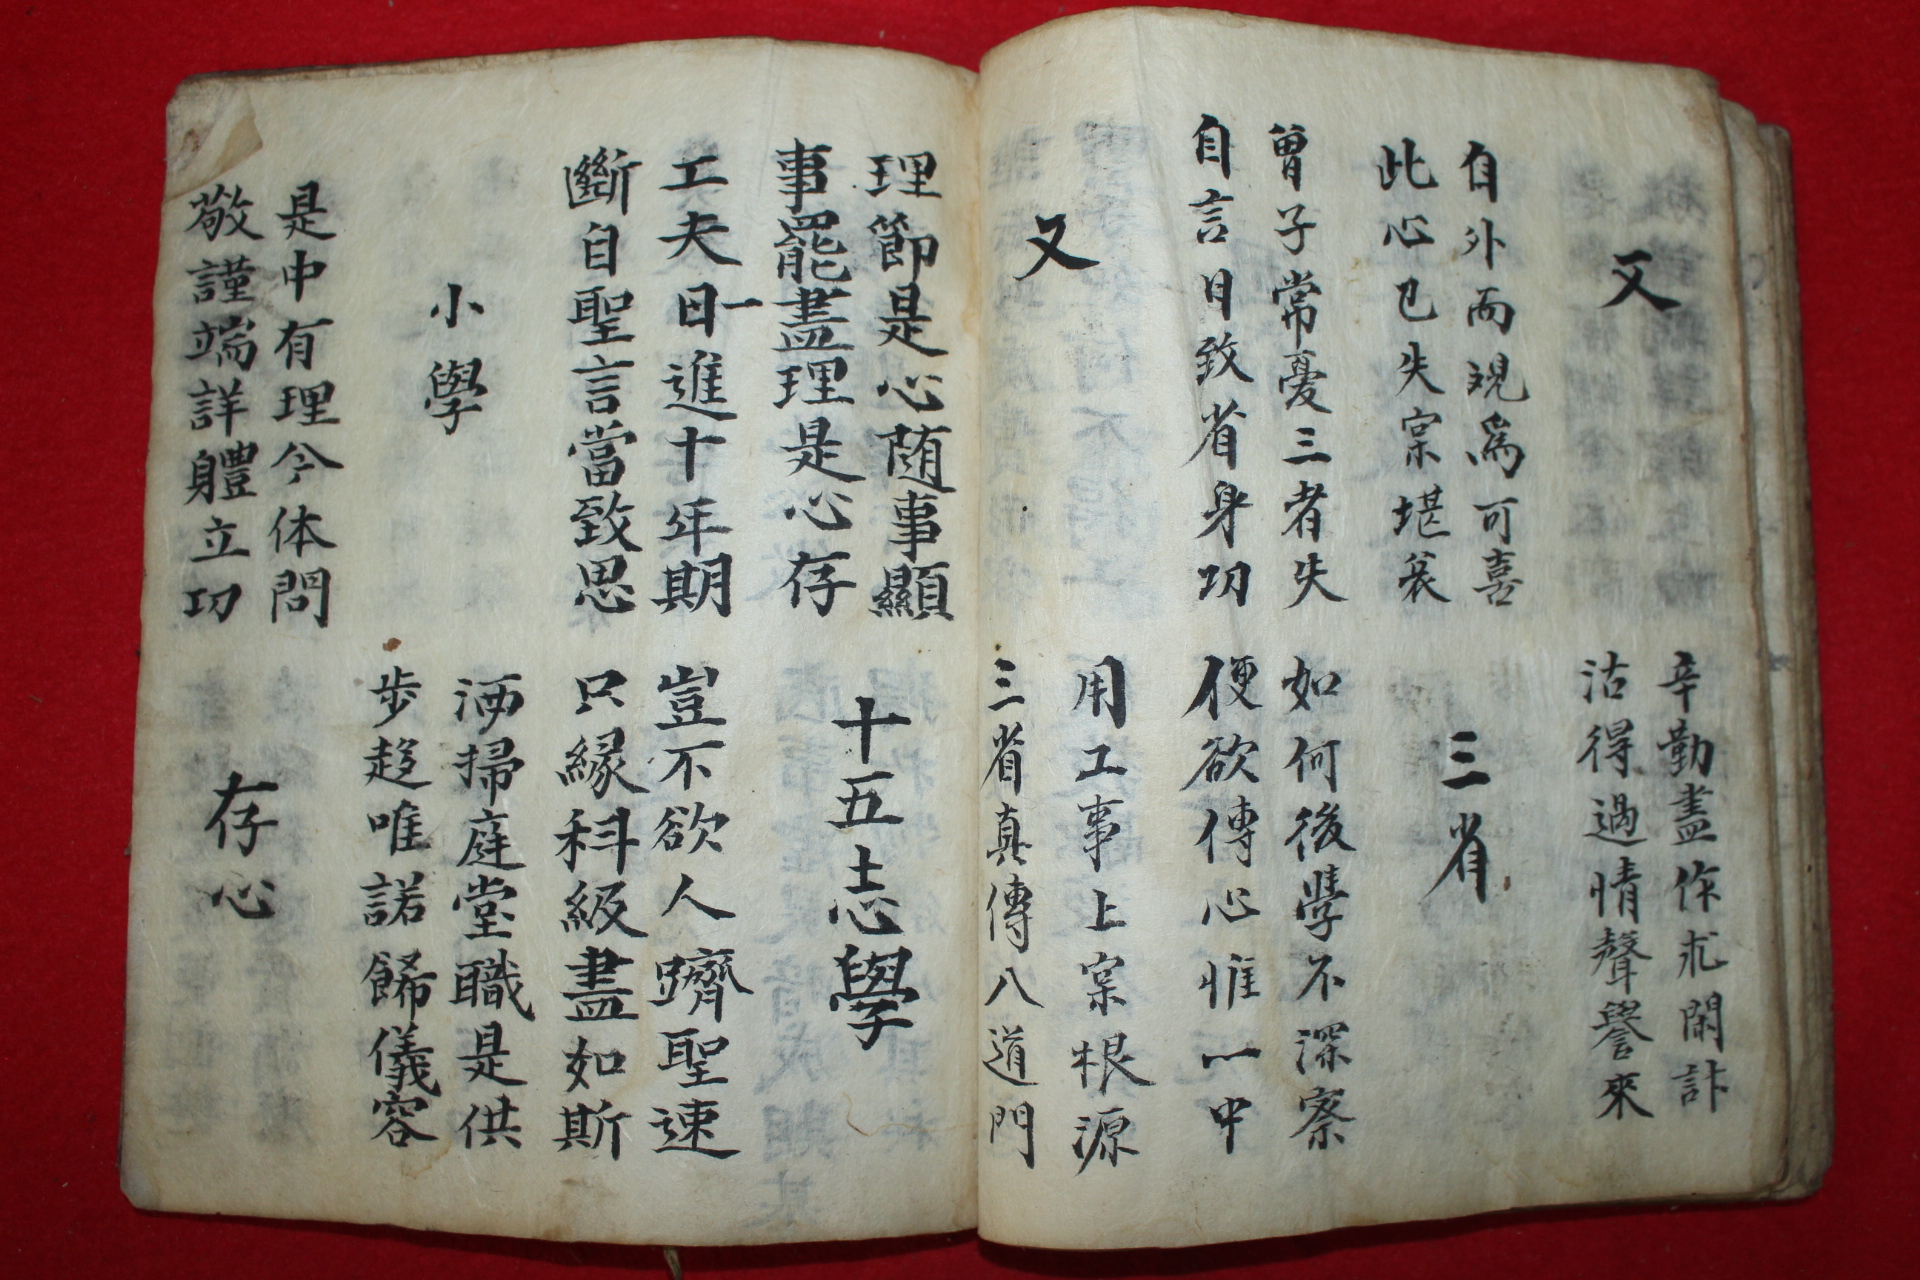 又
辛勤盡作求聞計
沽得過情聲譽來
自外而観為可喜
此心已失宲堪哀
三省
曾子常憂三者失
自言日致省身功
如何後學不深察
便欲傳心惟一中
又
用工事上宲根源
三省真傳八道門
理節是心随事顯
事罷盡理是心存
十五志學
工夫日一進十年期
斷自聖言當致思
豈不欲人躋聖速
只緣科級盡如斯
小學
洒掃庭堂職是供
步趍唯諾餙儀容
是中有理今体問
敬謹端詳體立功
存心